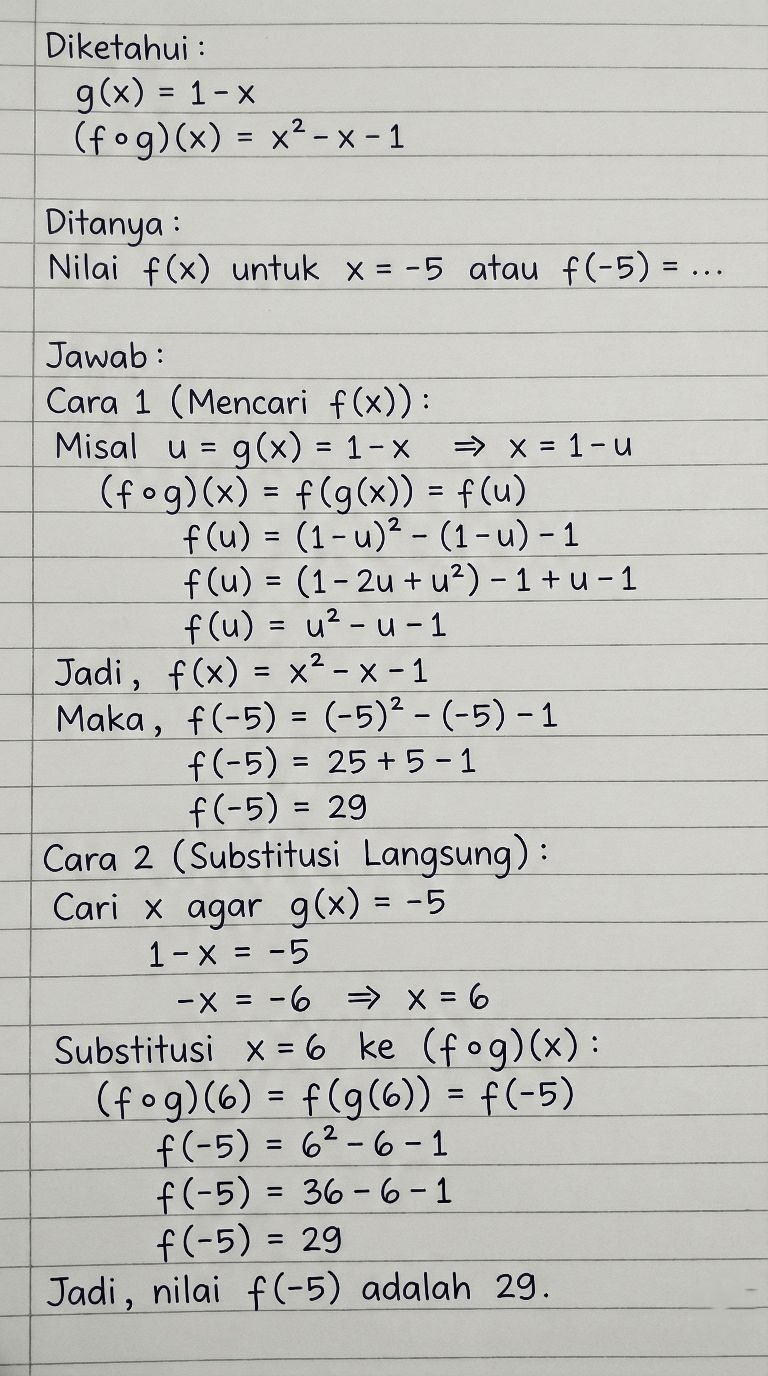 Diketahui :
g(x) = 1 - x
(f∘g)(x) = x² - x - 1
Ditanya :
Nilai f(x) untuk x = -5 atau f(-5) = ...
Jawab :
Cara 1 (Mencari f(x)) :
Misal u = g(x) = 1 - x ⇒ x = 1 - u
(f∘g)(x) = f(g(x)) = f(u)
f(u) = (1 - u)² - (1 - u) - 1
f(u) = (1 - 2u + u²) - 1 + u - 1
f(u) = u² - u - 1
Jadi, f(x) = x² - x - 1
Maka, f(-5) = (-5)² - (-5) - 1
f(-5) = 25 + 5 - 1
f(-5) = 29
Cara 2 (Substitusi Langsung) :
Cari x agar g(x) = -5
1 - x = -5
-x = -6 ⇒ x = 6
Substitusi x = 6 ke (f∘g)(x) :
(f∘g)(6) = f(g(6)) = f(-5)
f(-5) = 6² - 6 - 1
f(-5) = 36 - 6 - 1
f(-5) = 29
Jadi, nilai f(-5) adalah 29.